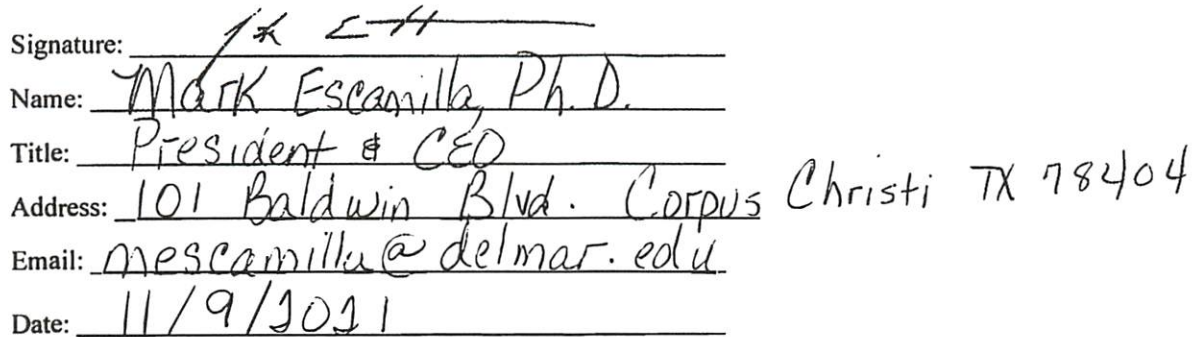 Signature:
Name: Mark Escamilla, Ph. D.
Title: President & CEO
Address: 101 Baldwin Blvd. Corpus Christi TX 78404
Email: mescamilla@delmar.edu
Date: 11/9/2021